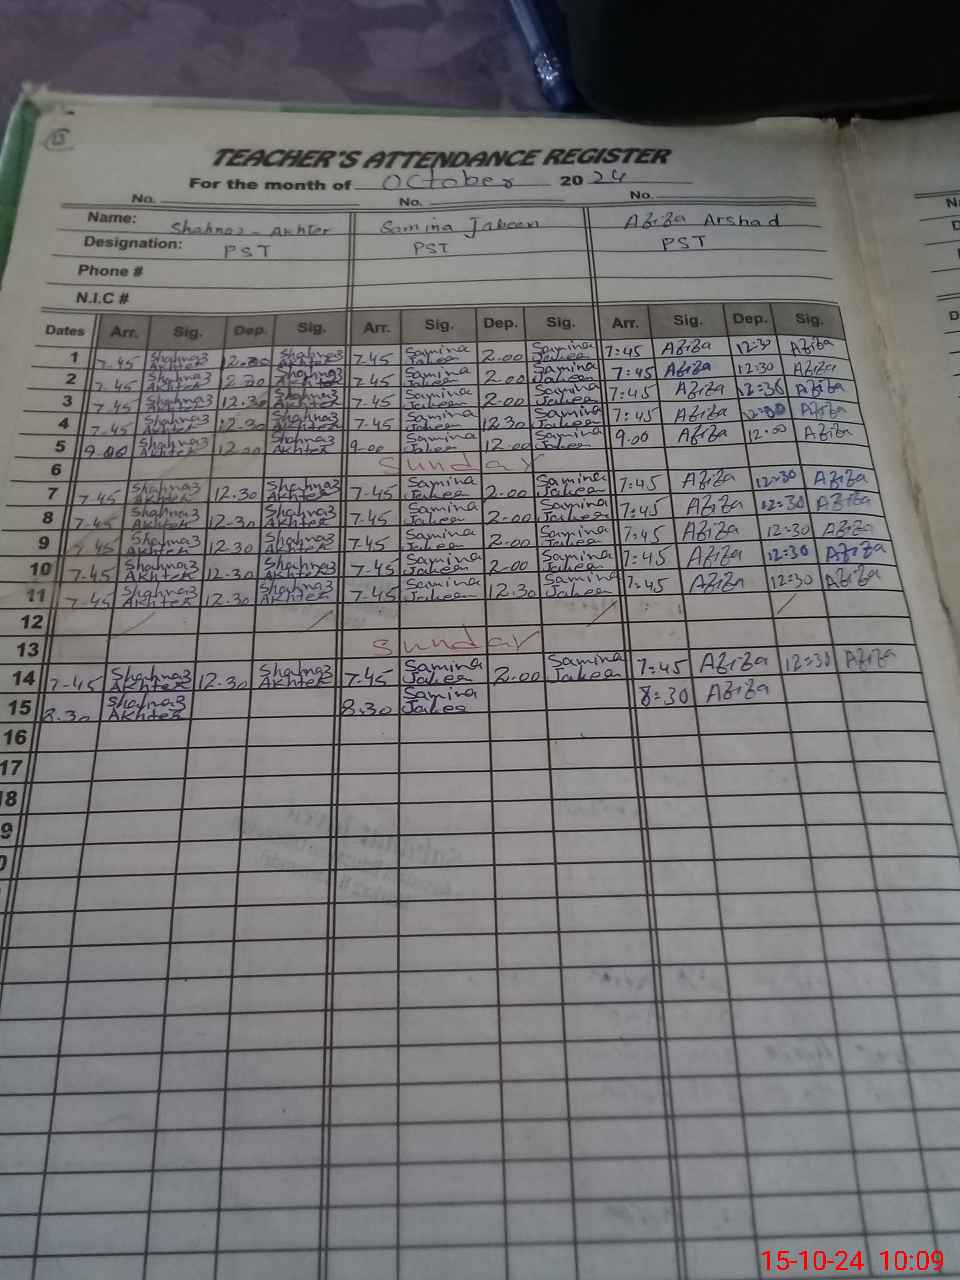 15
TEACHER'S ATTENDANCE REGISTER
For the month of October 2024
No. No. No.
Name: Shahnaz - Akhter Samina Jabeen Aziza Arshad
Designation: PST PST PST
Phone #
N.I.C #
Dates Arr. Sig. Dep. Sig. Arr. Sig. Dep. Sig. Arr. Sig. Dep. Sig.
1 7-45 Shahnaz Akhter 12.30 Shahnaz Akhter 7-45 Samina Jabeen 2.00 Samina Jabeen 7:45 Aziza 12:30 Aziza
2 7-45 Shahnaz Akhter Shahnaz Akhter 7-45 Samina Jabeen 2.00 Samina Jabeen 7:45 Aziza 12:30 Aziza
3 7-45 Shahnaz Akhter 12.30 Shahnaz Akhter 7-45 Samina Jabeen 2.00 Samina Jabeen 7:45 Aziza 12:30 Aziza
4 7-45 Shahnaz Akhter 12.30 Shahnaz Akhter 7-45 Samina Jabeen 12.30 Samina Jabeen 7:45 Aziza Aziza
5 9.00 Shahnaz Akhter 12.00 Shahnaz Akhter 9-00 Samina Jabeen 12.00 Samina Jabeen 9.00 Aziza 12:00 Aziza
6 Sunday
7 7-45 Shahnaz Akhter 12.30 Shahnaz Akhter 7-45 Samina Jabeen 2-00 Samina Jabeen 7:45 Aziza 12:30 Aziza
8 7-45 Shahnaz Akhter 12-30 Shahnaz Akhter 7-45 Samina Jabeen 2-00 Samina Jabeen 7:45 Aziza 12:30 Aziza
9 7-45 Shahnaz Akhter 12.30 Shahnaz Akhter 7-45 Samina Jabeen 2.00 Samina Jabeen 7:45 Aziza 12:30 Aziza
10 7-45 Shahnaz Akhter 12-30 Shahnaz Akhter 7-45 Samina Jabeen 2-00 Samina Jabeen 7:45 Aziza 12:30 Aziza
11 7-45 Shahnaz Akhter 12.30 Shahnaz Akhter 7-45 Samina Jabeen 12.30 Samina Jabeen 7:45 Aziza 12:30 Aziza
12
13 Sunday
14 7-45 Shahnaz Akhter 12.30 Shahnaz Akhter 7-45 Samina Jabeen 2.00 Samina Jabeen 7:45 Aziza 12:30 Aziza
15 8.30 Shahnaz Akhter 8.30 Samina Jabeen 8:30 Aziza
16
17
18
9
0
15-10-24 10:09